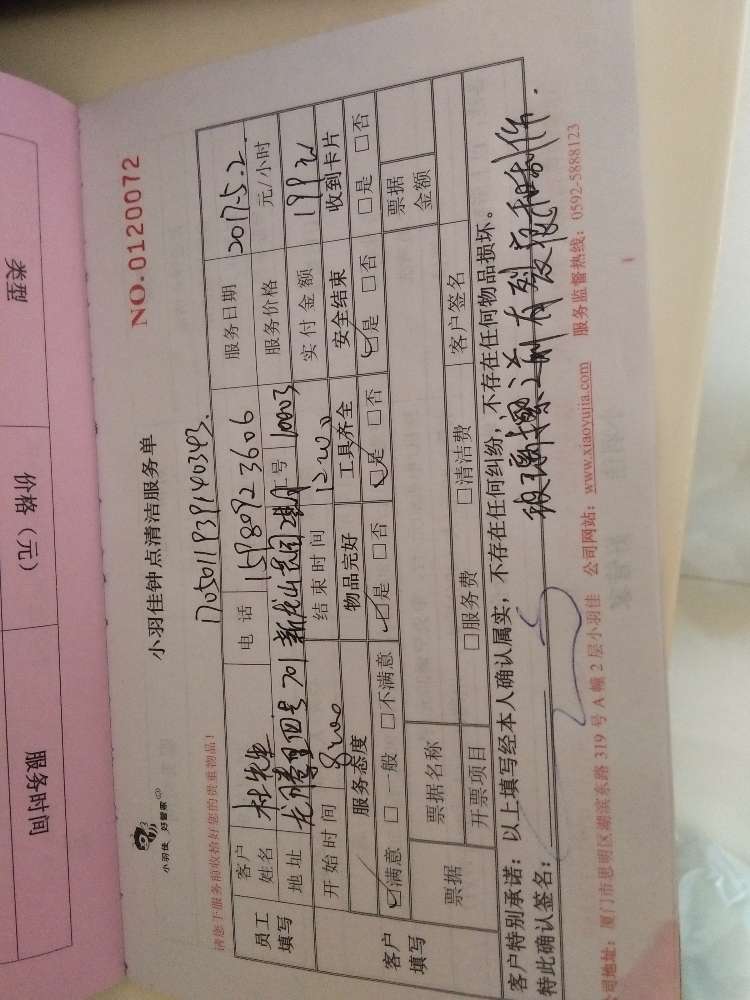 小羽佳 好管家
小羽佳钟点清洁服务单
NO.0120072
请您下服务前收拾好您的贵重物品!
1705011939140343.
员工填写
客户姓名 杜先生 电话 15980923606 服务日期 2017-5.2
地址 701 工号 10003 服务价格 元/小时
客户填写
开始时间 8:00 结束时间 12:00 实付金额 199元
服务态度 物品完好 工具齐全 安全结束 收到卡片
☑满意 □一般 □不满意 ☑是 □否 ☑是 □否 ☑是 □否 □是 □否
票据 票据名称 票据金额
开票项目 □服务费 □清洁费 客户签名
客户特别承诺:以上填写经本人确认属实,不存在任何纠纷,不存在任何物品损坏。
特此确认签名: 玻璃擦之前有裂痕和
司地址:厦门市思明区湖滨东路 319 号 A 幢 2 层小羽佳 公司网站:www.xiaoyujia.com 服务监督热线:0592-5888123
类型
价格(元)
服务时间